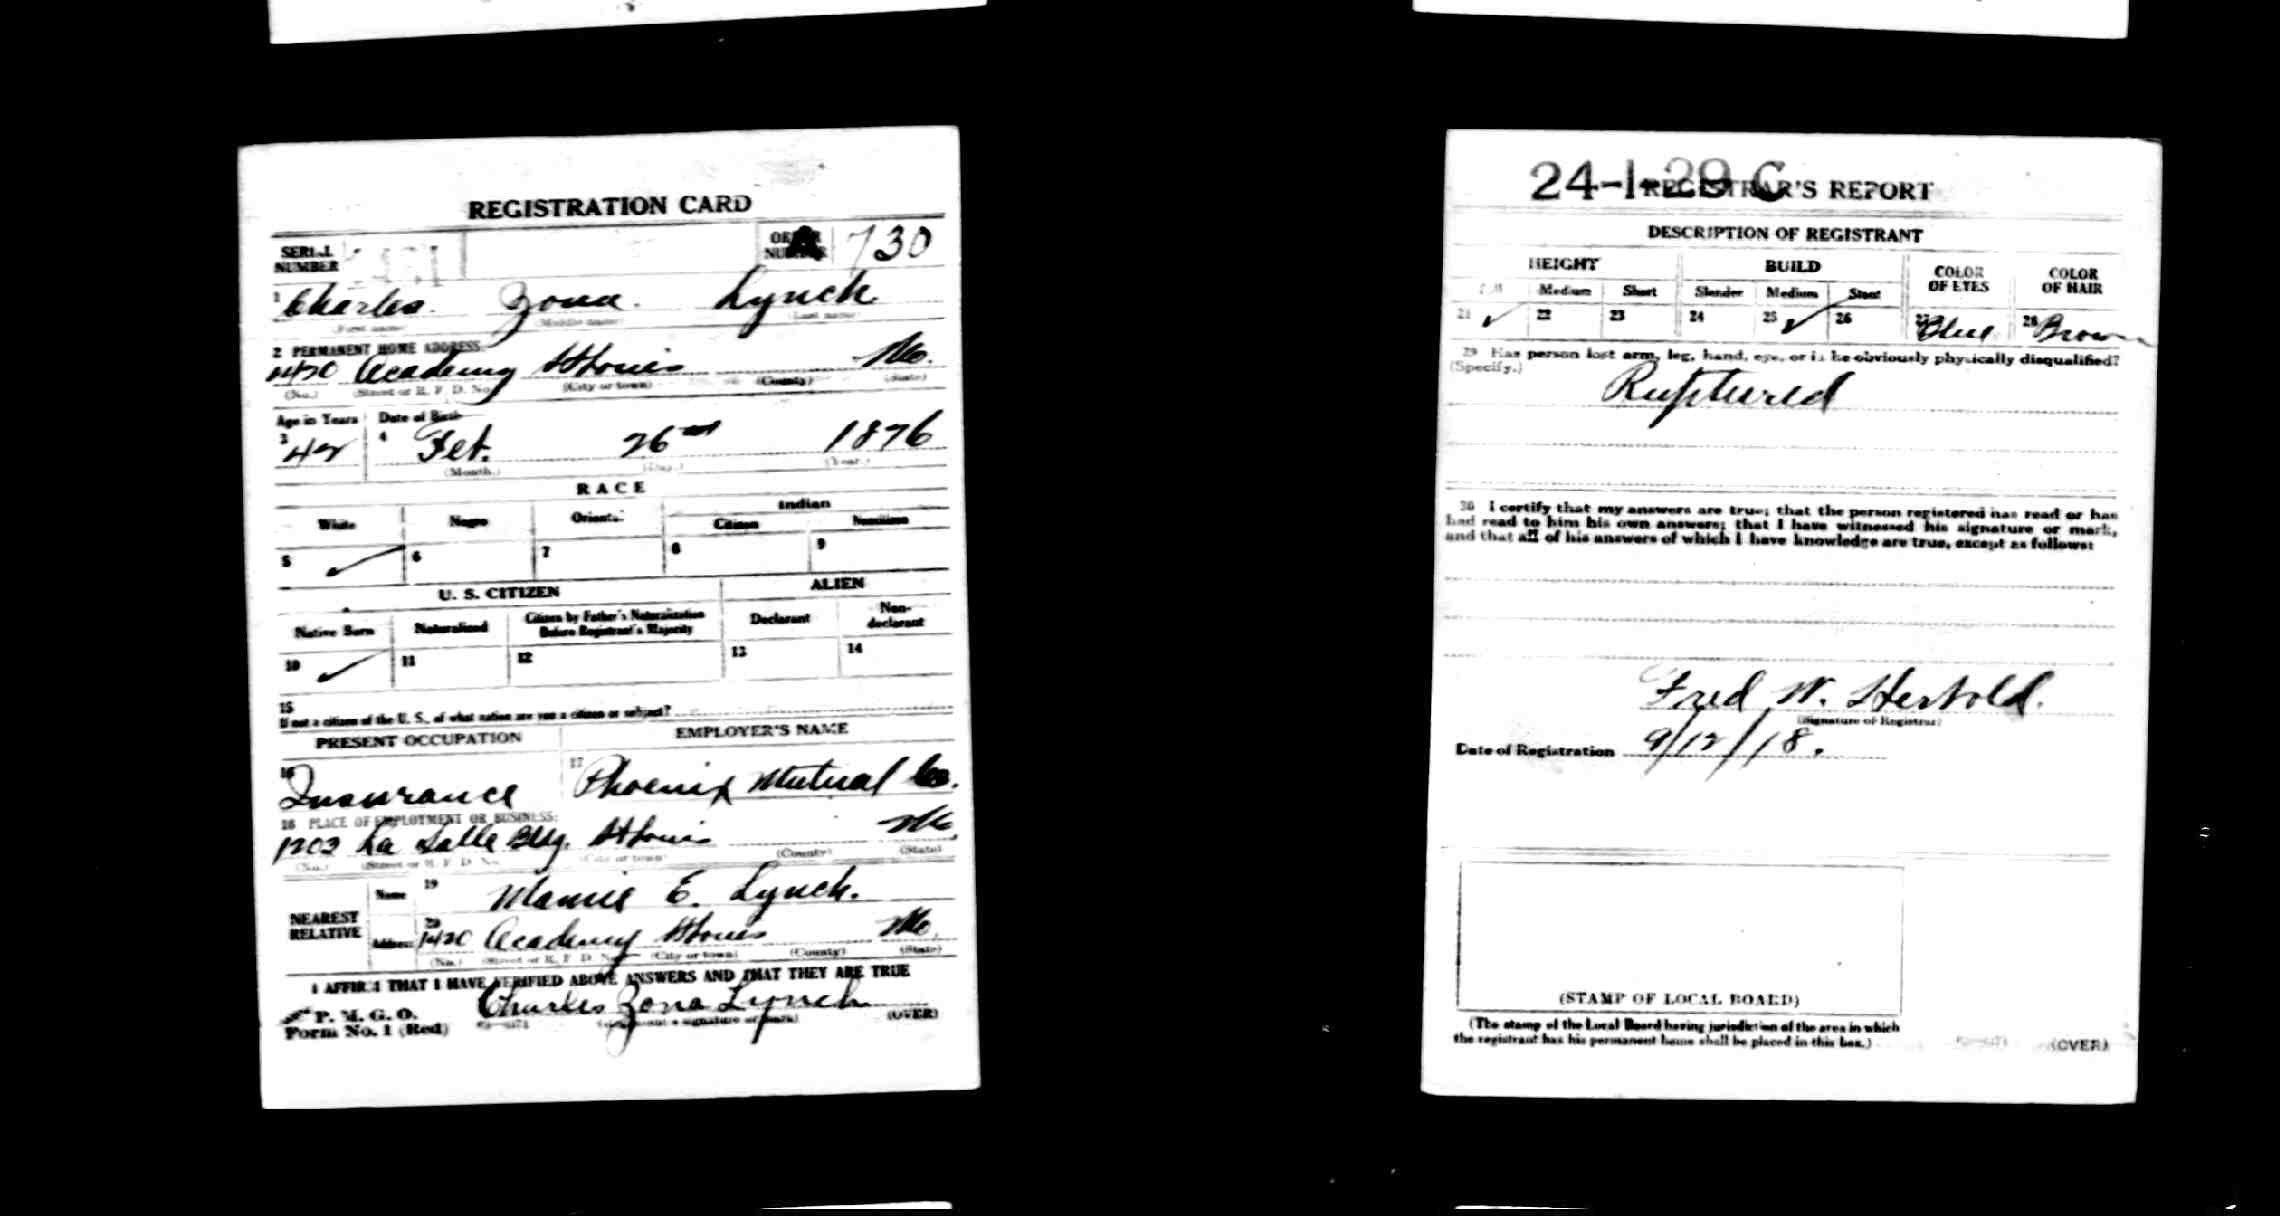 REGISTRATION CARD
SERIAL NUMBER
ORDER NUMBER A 730
1 Charles Zona Lynch
(First name) (Middle name) (Last name)
2 PERMANENT HOME ADDRESS:
1420 Academy St Louis Mo.
(No.) (Street or R. F. D. No.) (City or town) (County) (State)
Age in Years Date of Birth
3 42 4 Feb. 26th 1876
(Month.) (Day.) (Year.)
RACE
White Negro Oriental Indian
Citizen Noncitizen
5 ✓ 6 7 8 9
U. S. CITIZEN ALIEN
Native Born Naturalized Citizen by Father's Naturalization Before Registrant's Majority Declarant Non-declarant
10 ✓ 11 12 13 14
15
If not a citizen of the U. S., of what nation are you a citizen or subject?
PRESENT OCCUPATION EMPLOYER'S NAME
16 Insurance 17 Phoenix Mutual Co.
18 PLACE OF EMPLOYMENT OR BUSINESS:
1203 La Salle Bldg. St Louis Mo
(No.) (Street or R. F. D. No.) (City or town) (County) (State)
NEAREST RELATIVE
Name 19 Mamie E. Lynch.
Address 20 1420 Academy St Louis Mo.
(No.) (Street or R. F. D. No.) (City or town) (County) (State)
I AFFIRM THAT I HAVE VERIFIED ABOVE ANSWERS AND THAT THEY ARE TRUE
P. M. G. O.
Form No. 1 (Red)
Charles Zona Lynch
(Registrant's signature or mark) (OVER)
24-1-29 C
REGISTRAR'S REPORT
DESCRIPTION OF REGISTRANT
HEIGHT BUILD COLOR OF EYES COLOR OF HAIR
Tall Medium Short Slender Medium Stout
21 ✓ 22 23 24 25 ✓ 26 27 Blue 28 Brown
29 Has person lost arm, leg, hand, eye, or is he obviously physically disqualified?
(Specify.)
Ruptured
30 I certify that my answers are true; that the person registered has read or has
had read to him his own answers; that I have witnessed his signature or mark,
and that all of his answers of which I have knowledge are true, except as follows:
Fred W. Herbold.
(Signature of Registrar)
Date of Registration 9/12/18.
(STAMP OF LOCAL BOARD)
(The stamp of the Local Board having jurisdiction of the area in which
the registrant has his permanent home shall be placed in this box.)
(OVER)